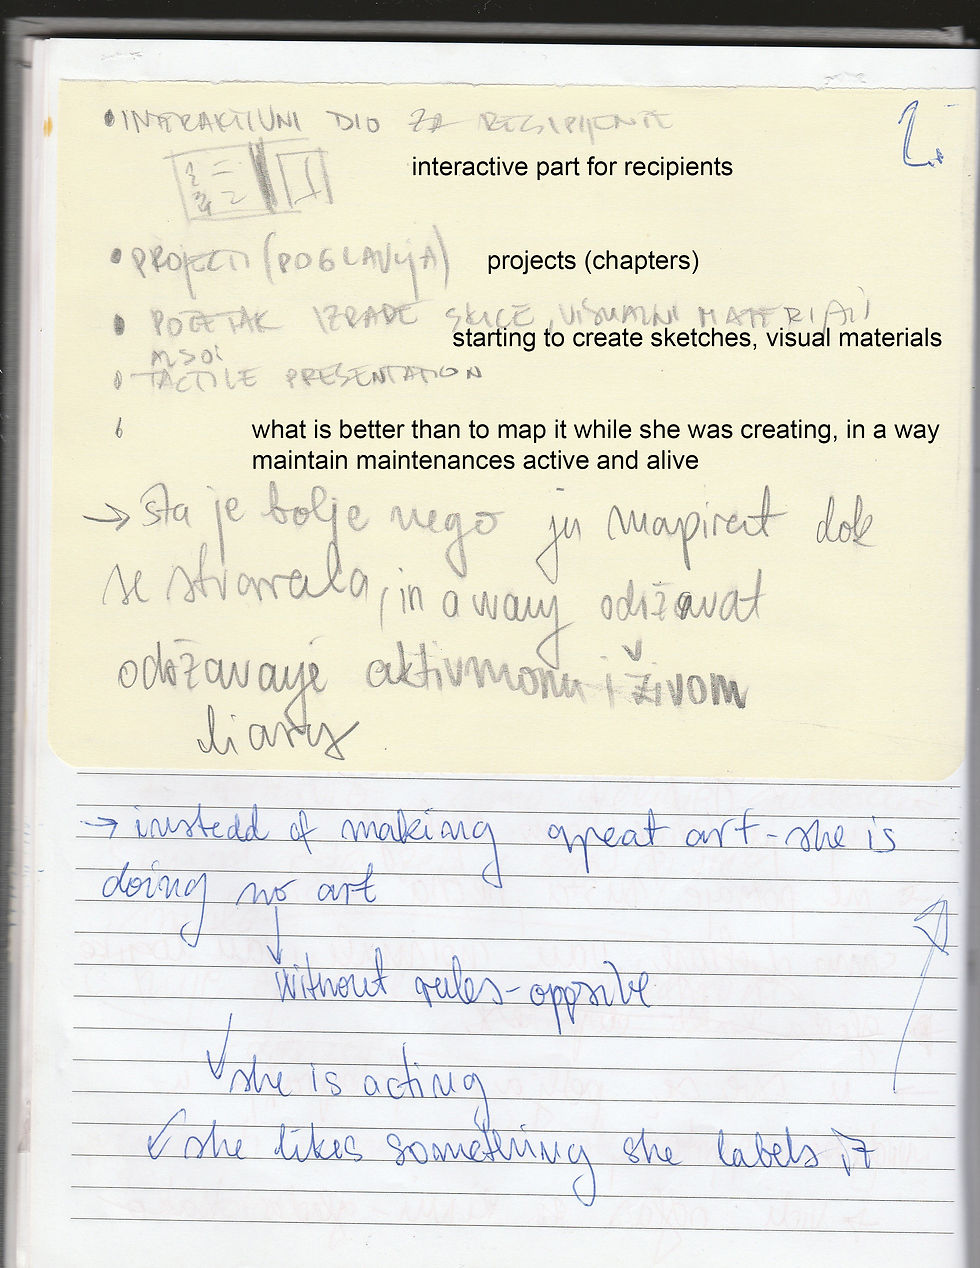 • INTERAKTIVNI DIO ZA RECIPIJENTE
2.
interactive part for recipients
• PROJECTI (POGLAVLJA)
projects (chapters)
• POČETAK IZRADE SKICE, VISUALNI MATERIJALI
starting to create sketches, visual materials
ALSO:
TACTILE PRESENTATION
what is better than to map it while she was creating, in a way
maintain maintenances active and alive
→ šta je bolje nego ju mapirat dok
se stvarala, in a way održavat
održavanje aktivnom i živom
→ instead of making great art - she is
doing no art
without rules - opposite
she is acting
she likes something she labels it